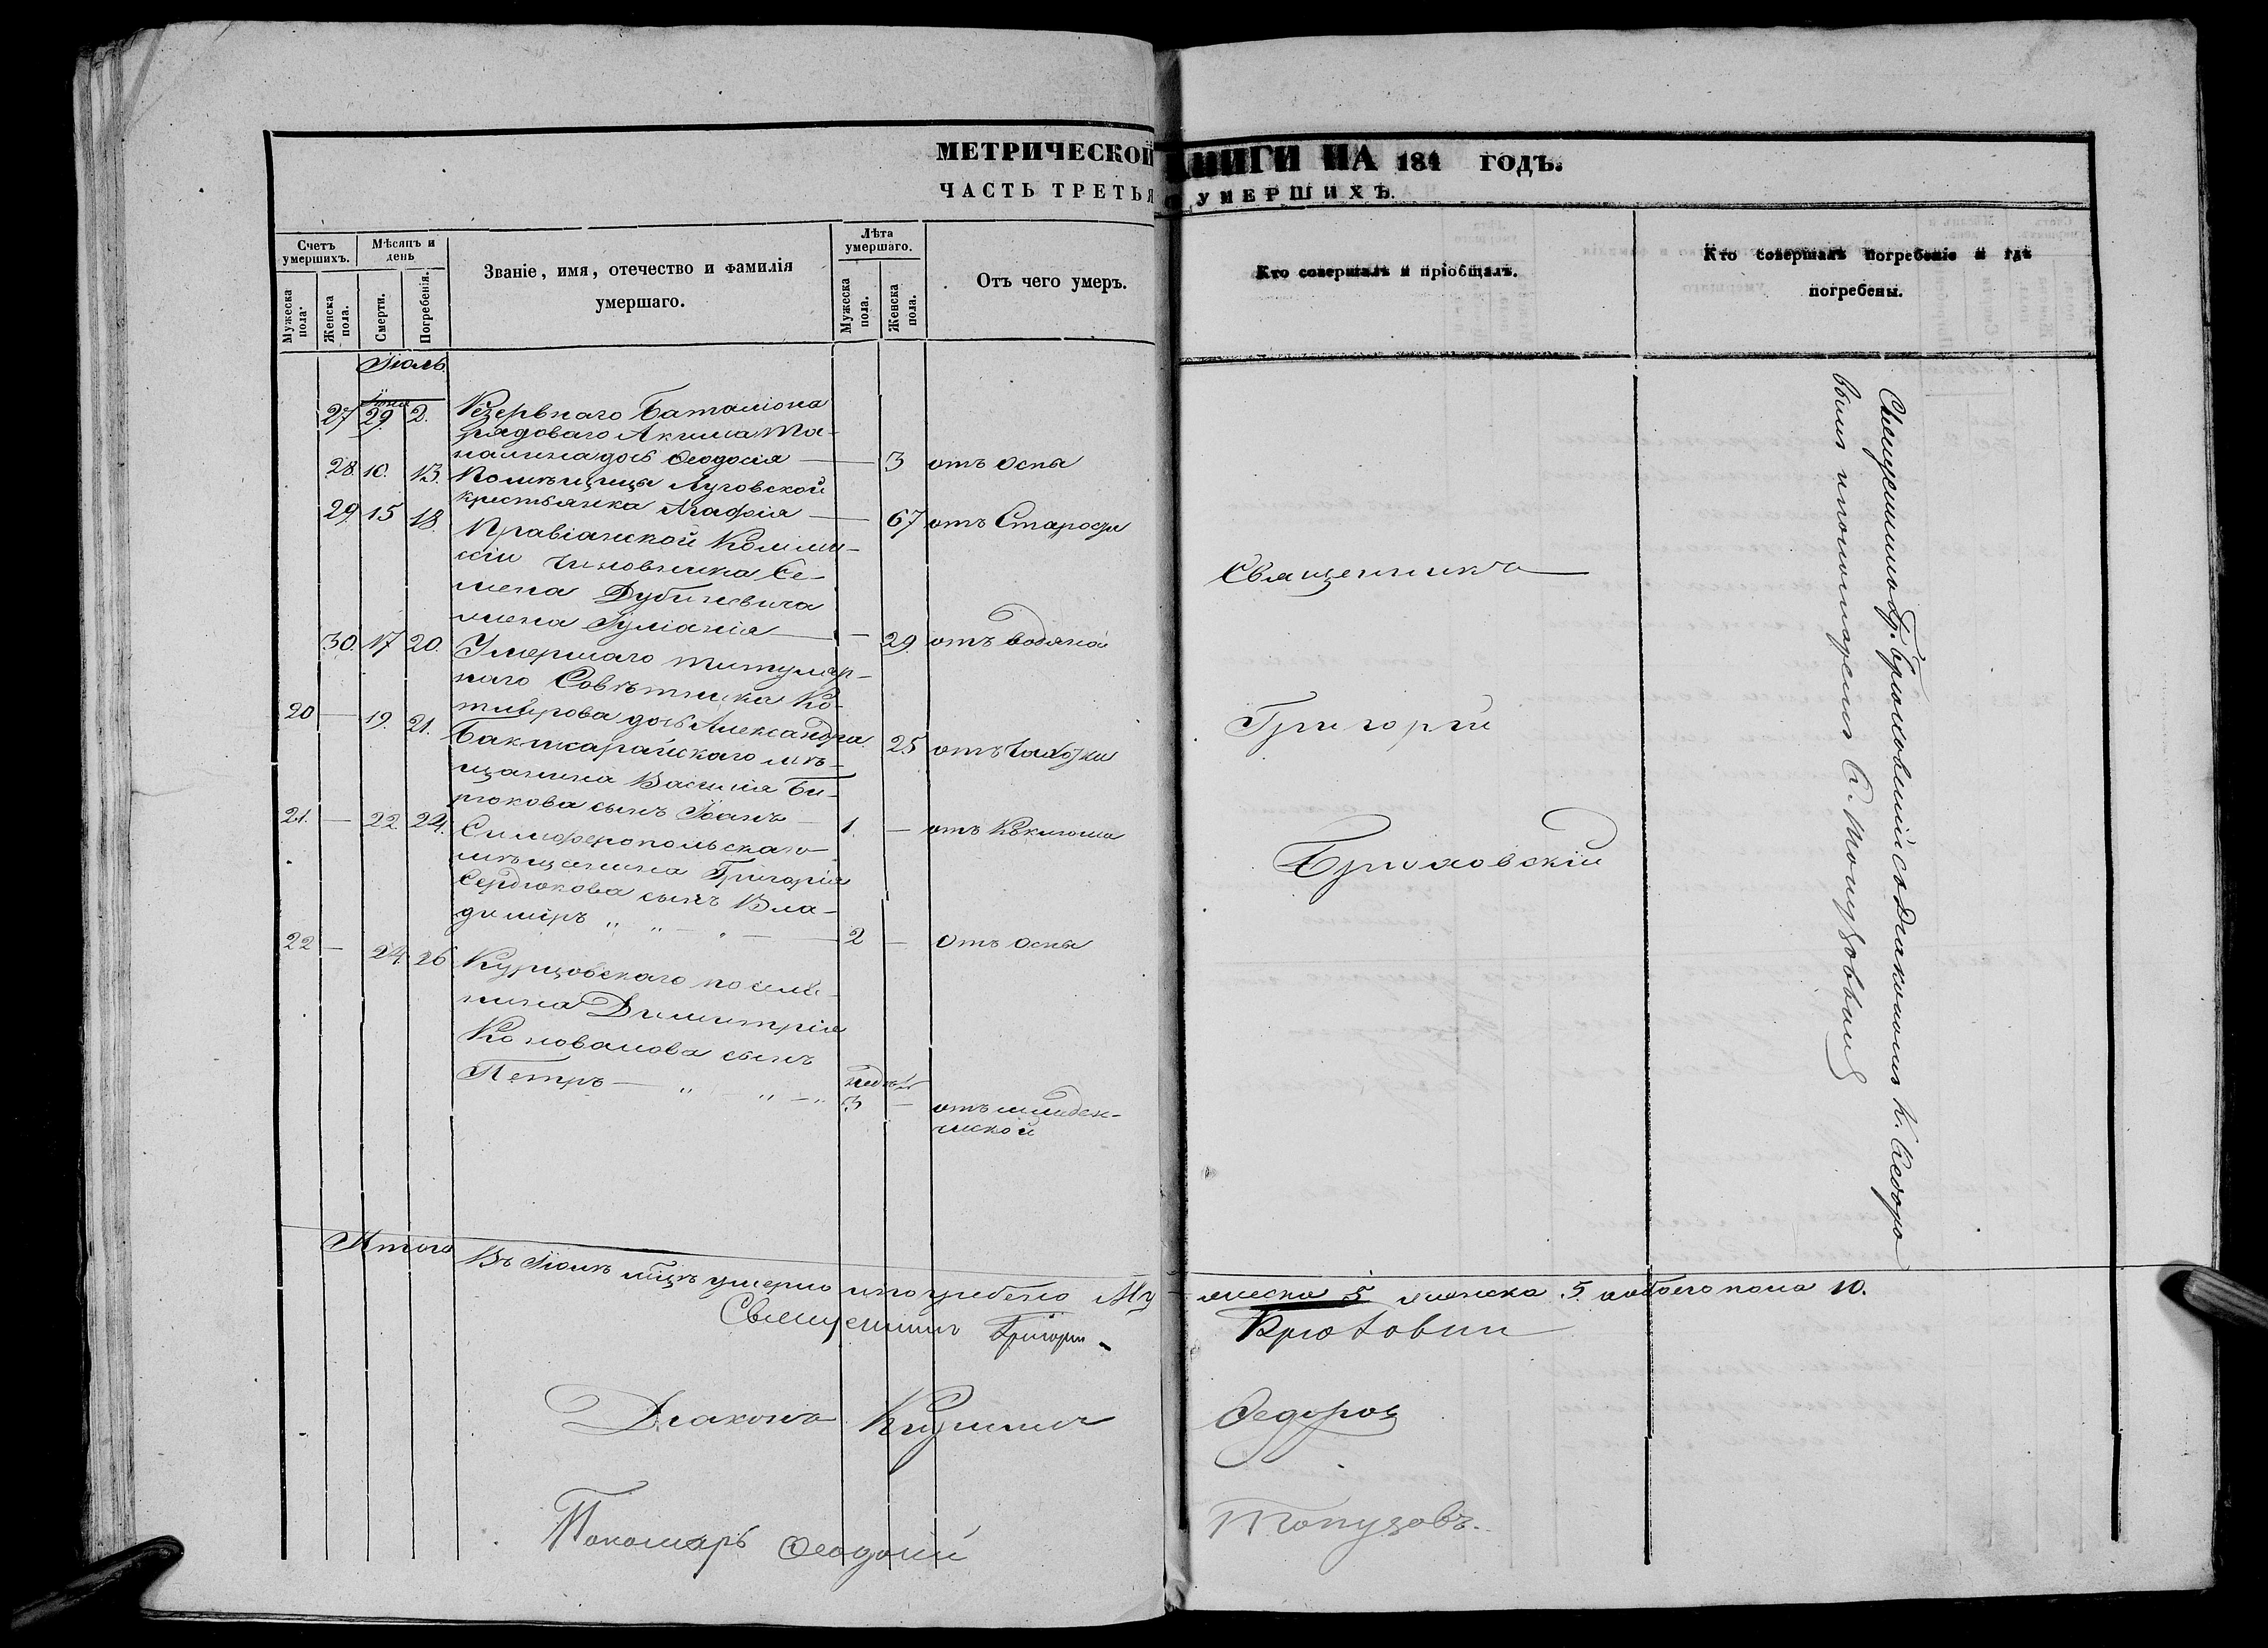 МЕТРИЧЕСКОЙ КНИГИ НА 184 ГОДЪ.
ЧАСТЬ ТРЕТЬЯ УМЕРШИХЪ.
Счетъ умершихъ.
Мѣсяцъ и день
Званіе, имя, отечество и фамилія умершаго.
Лѣта умершаго.
Отъ чего умеръ.
Кто совершалъ и пріобщалъ.
Кто совершалъ погребеніе и гдѣ погребены.
Мужеска пола.
Женска пола.
Смерти.
Погребенія.
Мужеска пола.
Женска пола.
Іюль
Іюня
27 29. 2. Резервнаго баталіона
рядоваго Акима
дочь Ѳеодосія — 3 отъ оспы
28. 10. 13. Помѣщицы Луговской
крестьянка Агафія — 67 отъ Старости
29. 15 18. Правіанской Комми-
сіи чиновника Се-
мена Дубиневича
жена Іуліанія — 29. отъ водяной
30. 17 20. Умершаго титуляр-
наго Совѣтника Ко-
дочь Александра 25 отъ чахотки
20 — 19. 21. Бакчисарайскаго мѣ-
щанина Василія Би-
рюкова сынъ Іоанъ — 1. — отъ Кокчюша
21. — 22. 24. Симферопольскаго
мѣщанина Григорія
Сердюкова сынъ Вла-
диміръ „ „ — „ — 2 — отъ оспы
22 — 24. 26 Курцовскаго поселя-
нина Димитрія
Коновалова сынъ
Петръ — „ — „ — „ недѣль 3 — отъ младен-
ческой
Священникъ
Григорій
Итого Въ Іюлѣ мцѣ умерло и погребено Му-
жеска 5 женска 5. обоего пола 10.
Священникъ Григорій
Діаконъ Кириллъ Федоров
Пономарь Ѳеодосій Топузовъ.